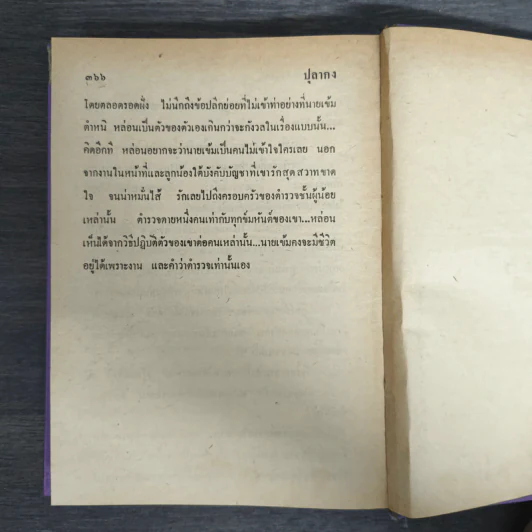 ๓๖๖ ปุลากง
โดยตลอดรอดฝั่ง ไม่นึกถึงข้อปลีกย่อยที่ไม่เข้าท่าอย่างที่นายเข้ม
ตำหนิ หล่อนเป็นตัวของตัวเองเกินกว่าจะกังวลในเรื่องแบบนั้น...
คิดอีกที หล่อนอยากจะว่านายเข้มเป็นคนไม่เข้าใจใครเลย นอก
จากงานในหน้าที่และลูกน้องใต้บังคับบัญชาที่เขารักสุด สวาทขาด
ใจ จนน่าหมั่นไส้ รักเลยไปถึงครอบครัวของตำรวจชั้นผู้น้อย
เหล่านั้น ตำรวจตายหนึ่งคนเท่ากับทุกข์มหันต์ของเขา...หล่อน
เห็นได้จากวิธีปฏิบัติตัวของเขาต่อคนเหล่านั้น...นายเข้มคงจะมีชีวิต
อยู่ได้เพราะงาน และคำว่าตำรวจเท่านั้นเอง